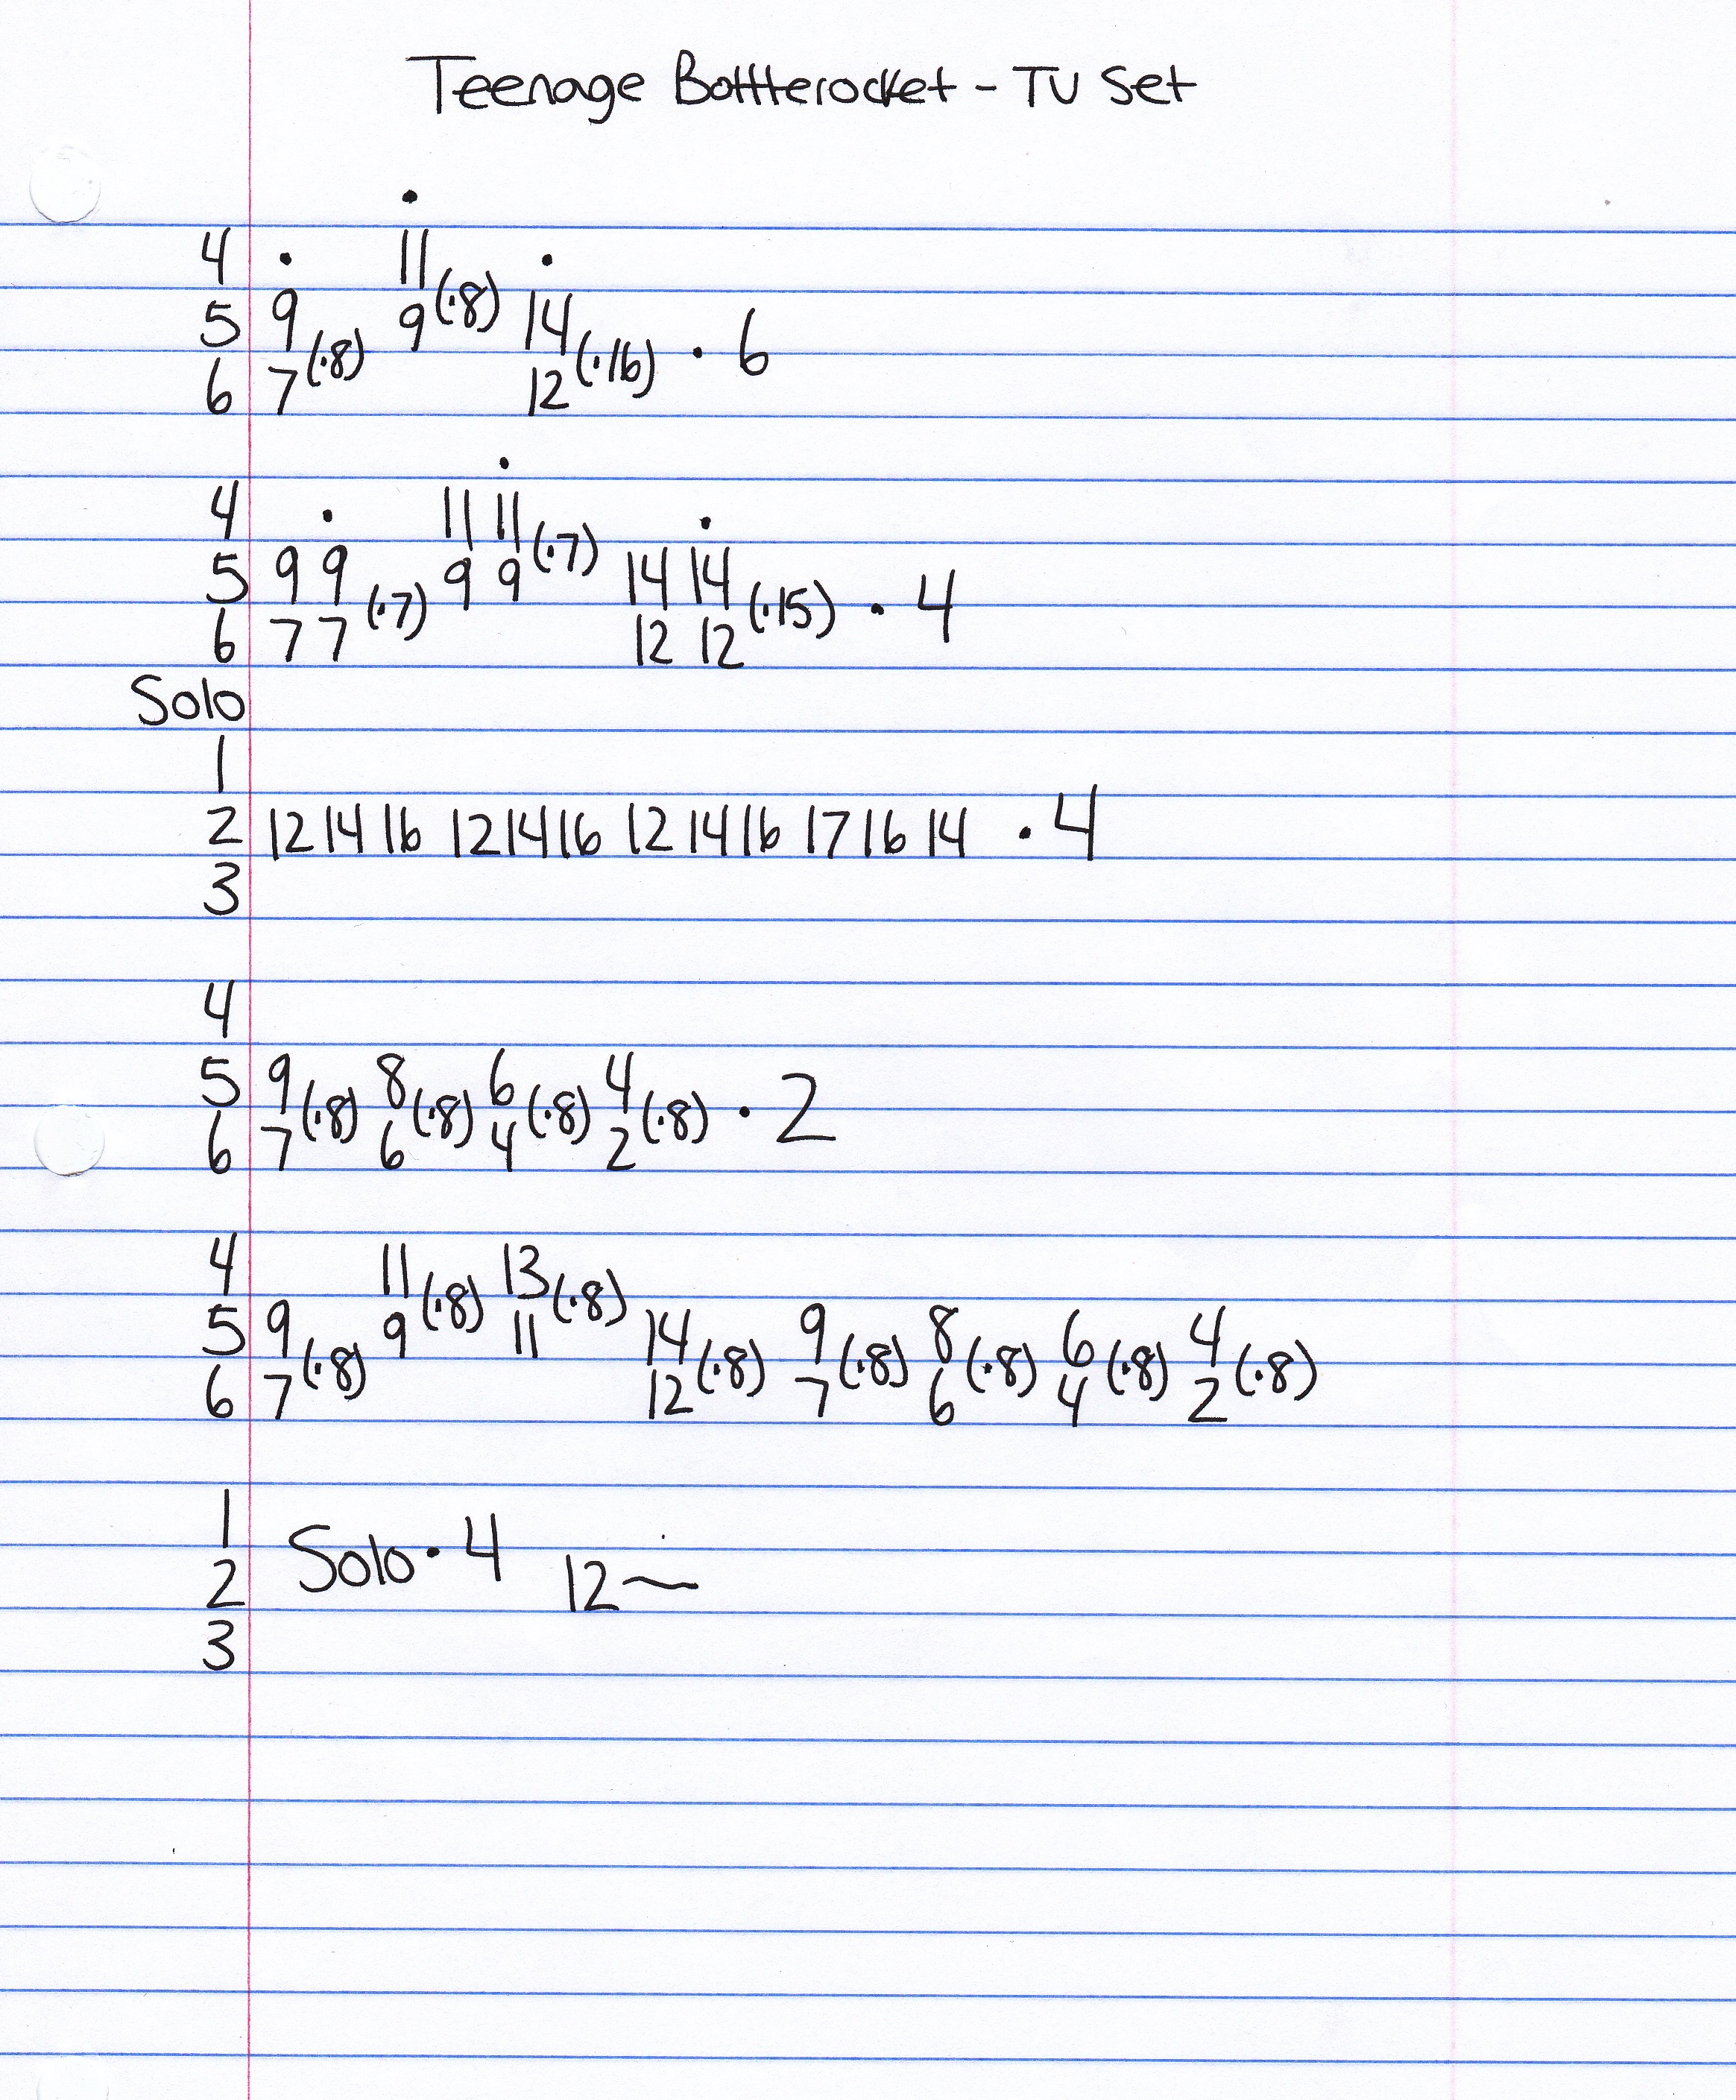 Teenage Bottlerocket - TV Set
•
4 • 11 •
5 9 (•8) 9 (•8) 14
6 7 12 (•16) • 6
•
4 • 11 11 •
5 9 9 (•7) 9 9 (•7) 14 14
6 7 7 12 12 (•15) • 4
Solo
1
2 12 14 16 12 14 16 12 14 16 17 16 14 • 4
3
4
5 9 (•8) 8 (•8) 6 (•8) 4 (•8) • 2
6 7 6 4 2
4 11 (•8) 13 (•8)
5 9 (•8) 9 11 14 (•8) 9 (•8) 8 (•8) 6 (•8) 4 (•8)
6 7 12 7 6 4 2
1
Solo • 4
2 12~
3